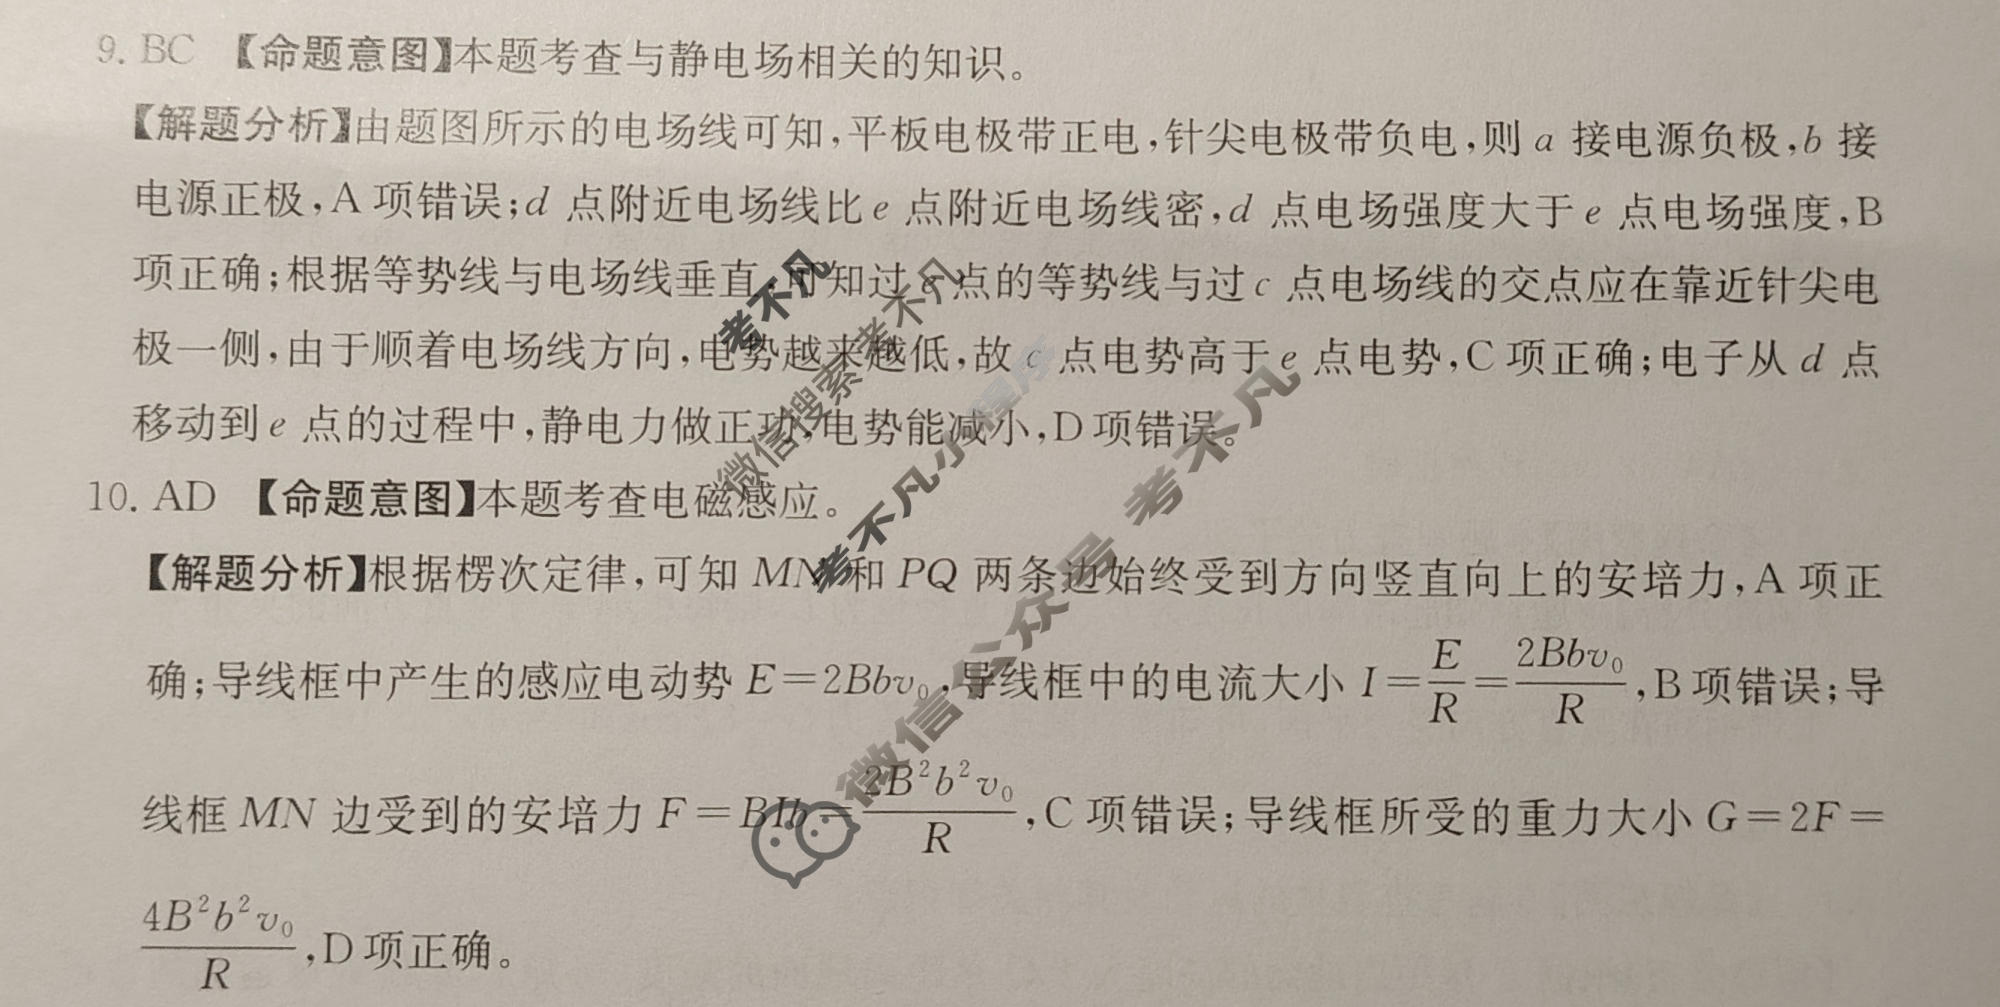 9. BC 【命题意图】本题考查与静电场相关的知识。
【解题分析】由题图所示的电场线可知,平板电极带正电,针尖电极带负电,则 a 接电源负极,b 接
电源正极,A 项错误;d 点附近电场线比 e 点附近电场线密,d 点电场强度大于 e 点电场强度,B
项正确;根据等势线与电场线垂直,可知过 e 点的等势线与过 c 点电场线的交点应在靠近针尖电
极一侧,由于顺着电场线方向,电势越来越低,故 c 点电势高于 e 点电势,C 项正确;电子从 d 点
移动到 e 点的过程中,静电力做正功,电势能减小,D 项错误。
10. AD 【命题意图】本题考查电磁感应。
【解题分析】根据楞次定律,可知 MN 和 PQ 两条边始终受到方向竖直向上的安培力,A 项正
确;导线框中产生的感应电动势 E=2Bbv₀,导线框中的电流大小 I=E/R=2Bbv₀/R,B 项错误;导
线框 MN 边受到的安培力 F=BIb=2B²b²v₀/R,C 项错误;导线框所受的重力大小 G=2F=
4B²b²v₀/R,D 项正确。
考不凡
微信搜索考不凡
考不凡小程序
微信公众号 考不凡